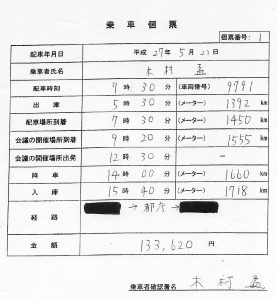 乗車個票
個票番号: 1
配車年月日 平成 27年 5月 21日
乗車者氏名 木村 孟
配車時刻 7時 30分 (車両番号) 9791
出庫 5時 30分 (メーター) 1392 km
配車場所到着 7時 30分 (メーター) 1450 km
会議の開催場所到着 9時 20分 (メーター) 1555 km
会議の開催場所出発 12時 30分 −
降車 14時 00分 (メーター) 1660 km
入庫 15時 40分 (メーター) 1718 km
経路 → 都庁 →
金額 133,620 円
乗車者確認署名 木村 孟